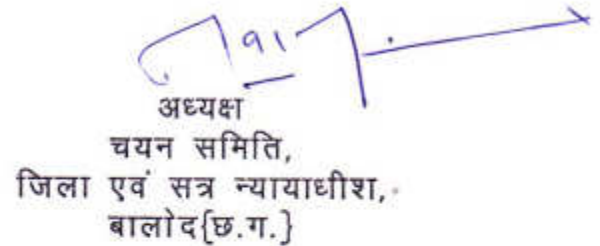 अध्यक्ष
चयन समिति,
जिला एवं सत्र न्यायाधीश,
बालोद{छ.ग.}